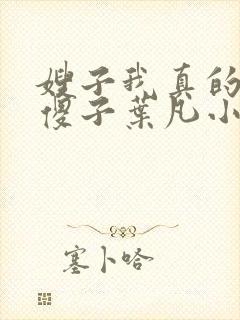 嫂子我真的
傻子葉凡小
塞卜哈